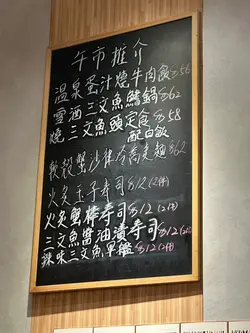 午市推介
溫泉蛋汁燒牛肉飯$56
雪酒三文魚鱔鍋$62
燒三文魚頭定食$58
配白飯
軟殼蟹沙律冷蕎麥麵$62
火炙玉子寿司$12(2件)
火炙蟹棒寿司$12(2件)
三文魚醬油漬寿司$12
辣味三文魚軍艦$12(2件)